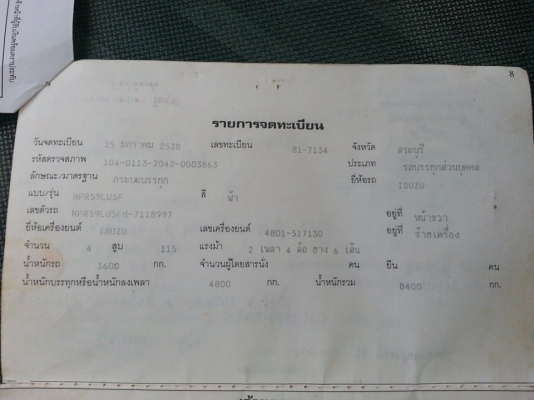 8
รายการจดทะเบียน
วันจดทะเบียน 25 มกราคม 2538 เลขทะเบียน 81-7134 จังหวัด สระบุรี
รหัสตรวจสภาพ 104-0113-2042-0003863 ประเภท รถบรรทุกส่วนบุคคล
ลักษณะ/มาตรฐาน กระบะบรรทุก ยี่ห้อรถ ISUZU
แบบ/รุ่น NPR59LU5F สี ฟ้า
เลขตัวรถ NPR59LU5FH-7118997 อยู่ที่ หน้าขวา
ยี่ห้อเครื่องยนต์ ISUZU เลขเครื่องยนต์ 4BD1-517130 อยู่ที่ ซ้ายเครื่อง
จำนวน 4 สูบ 115 แรงม้า 2 เพลา 4 ล้อ ยาง 6 เส้น
น้ำหนักรถ 3600 กก. จำนวนผู้โดยสารนั่ง คน ยืน คน
น้ำหนักบรรทุกหรือน้ำหนักลงเพลา 4800 กก. น้ำหนักรวม 8400 กก.